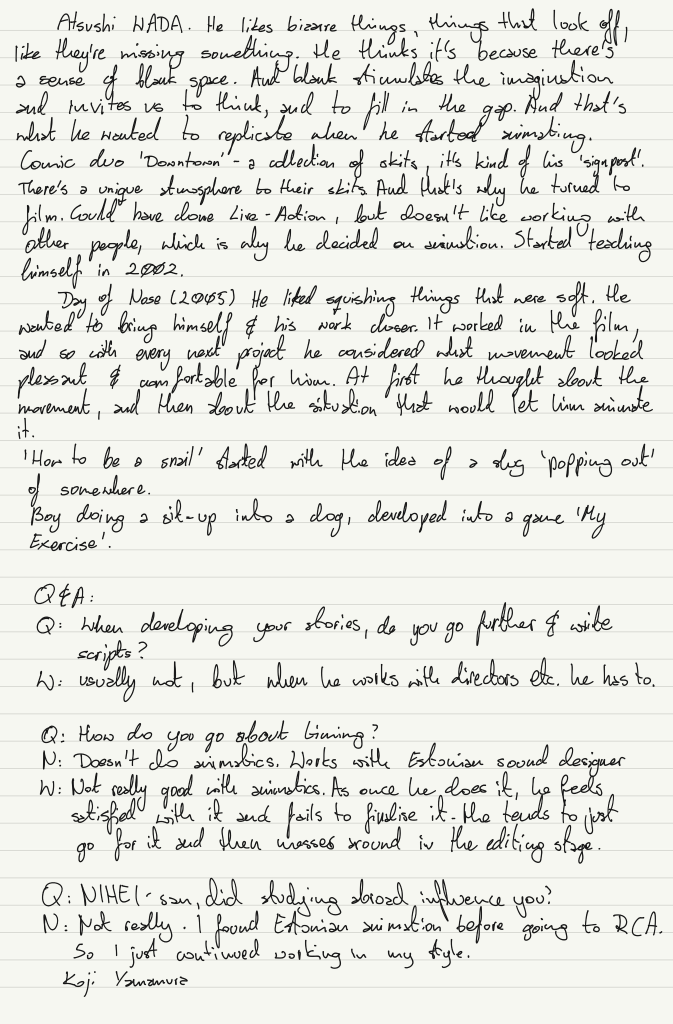 Atsushi WADA. He likes bizarre things, things that look off,
like they're missing something. He thinks it's because there's
a sense of blank space. And blank stimulates the imagination
and invites us to think, and to fill in the gap. And that's
what he wanted to replicate when he started animating.
Comic duo 'Downtown' - a collection of skits, it's kind of his 'signpost'.
There's a unique atmosphere to their skits. And that's why he turned to
film. Could have done Live-Action, but doesn't like working with
other people, which is why he decided on animation. Started teaching
himself in 2002.
Day of Nose (2005) He liked squishing things that were soft. He
wanted to bring himself & his work closer. It worked in the film,
and so with every next project he considered what movement looked
pleasant & comfortable for him. At first he thought about the
movement, and then about the situation that would let him animate
it.
'How to be a snail' started with the idea of a slug 'popping out'
of somewhere.
Boy doing a sit-up into a dog, developed into a game 'My
Exercise'.
Q&A:
Q: When developing your stories, do you go further & write
scripts?
W: usually not, but when he works with directors etc. he has to.
Q: How do you go about timing?
N: Doesn't do animatics. Works with Estonian sound designer
W: Not really good with animatics. As once he does it, he feels
satisfied with it and fails to finalise it. He tends to just
go for it and then messes around in the editing stage.
Q: NIHEI-san, did studying abroad influence you?
N: Not really. I found Estonian animation before going to RCA.
So I just continued working in my style.
Koji Yamamura